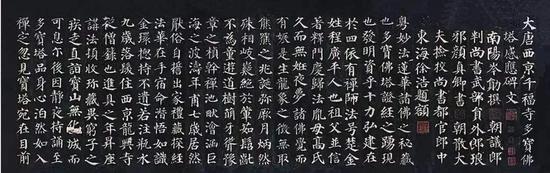 大唐西京千福寺多寶佛
塔感應碑文
南陽岑勛撰 朝議郎
判尚書武部員外郎琅
邪顏真卿書 朝散大
夫撿挍尚書都官郎中
東海徐浩題額
粵妙法蓮華諸佛之秘藏
也多寶佛塔證經之踴現
也發明資乎十力弘建在
於四依有禪師法号楚金
姓程廣平人也祖父並信
著釋門慶歸法胤母高氏
久而無姙夜夢諸佛覺而
有娠是生龍象之徵無取
熊羆之兆誕弥厥月炳然
殊相岐嶷絕於葷茹髫齔
不為童遊道樹萌牙聳豫
章之楨幹禪池畎澮涵巨
海之波濤年甫七歲居然
猒俗自誓出家禮藏探經
法華在手宿命潛悟如識
金環總持不遺若注瓶水
九歲落髮住西京龍興寺
從僧籙也進具之年昇座
講法頓收珍藏異窮子之
疾走直詣寶山無化城而
可息尔後因靜夜持誦至
多寶塔品身心泊然如入
禪定忽見寶塔宛在目前